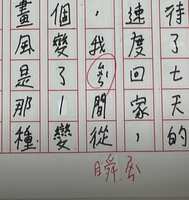 待了七天的
速度回家，
，我間從
個變了｜變
畫風是那種
瞬